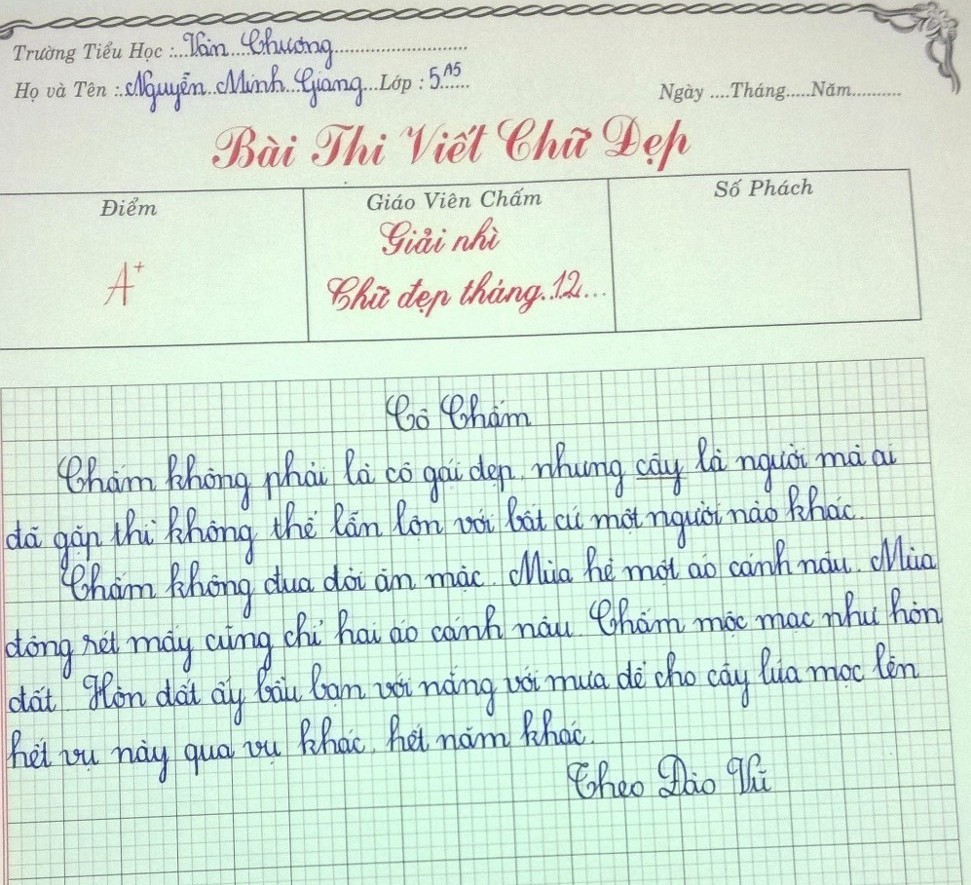 Trường Tiểu Học :...Văn Chương......................
Họ và Tên :..Nguyễn Minh Giang...Lớp : 5A5......
Ngày ....Tháng.....Năm..........
Bài Thi Viết Chữ Đẹp
Điểm
Giáo Viên Chấm
Số Phách
A+
Giải nhì
Chữ đẹp tháng..12...
Cô Chấm
Chấm không phải là cô gái đẹp, nhưng cây là người mà ai
đã gặp thì không thể lẫn lộn với bất cứ một người nào khác.
Chấm không đua đòi ăn mặc. Mùa hè một áo cánh nâu. Mùa
đông rét mấy cũng chỉ hai áo cánh nâu. Chấm mộc mạc như hòn
đất. Hòn đất ấy bầu bạn với nắng với mưa để cho cây lúa mọc lên
hết vụ này qua vụ khác, hết năm khác.
Theo Đào Vũ